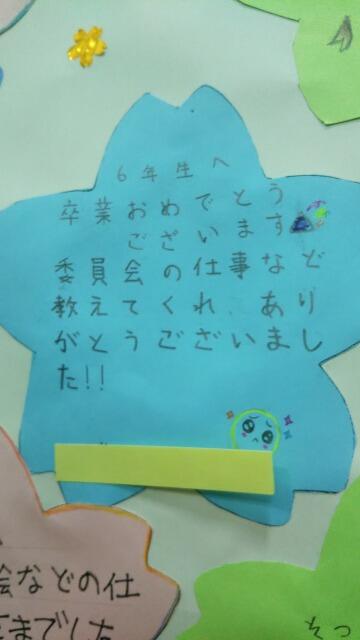 6年生へ
卒業おめでとう
ございます
委員会の仕事など
教えてくれ、あり
がとうございまし
た!!
などの仕
までした
そつ